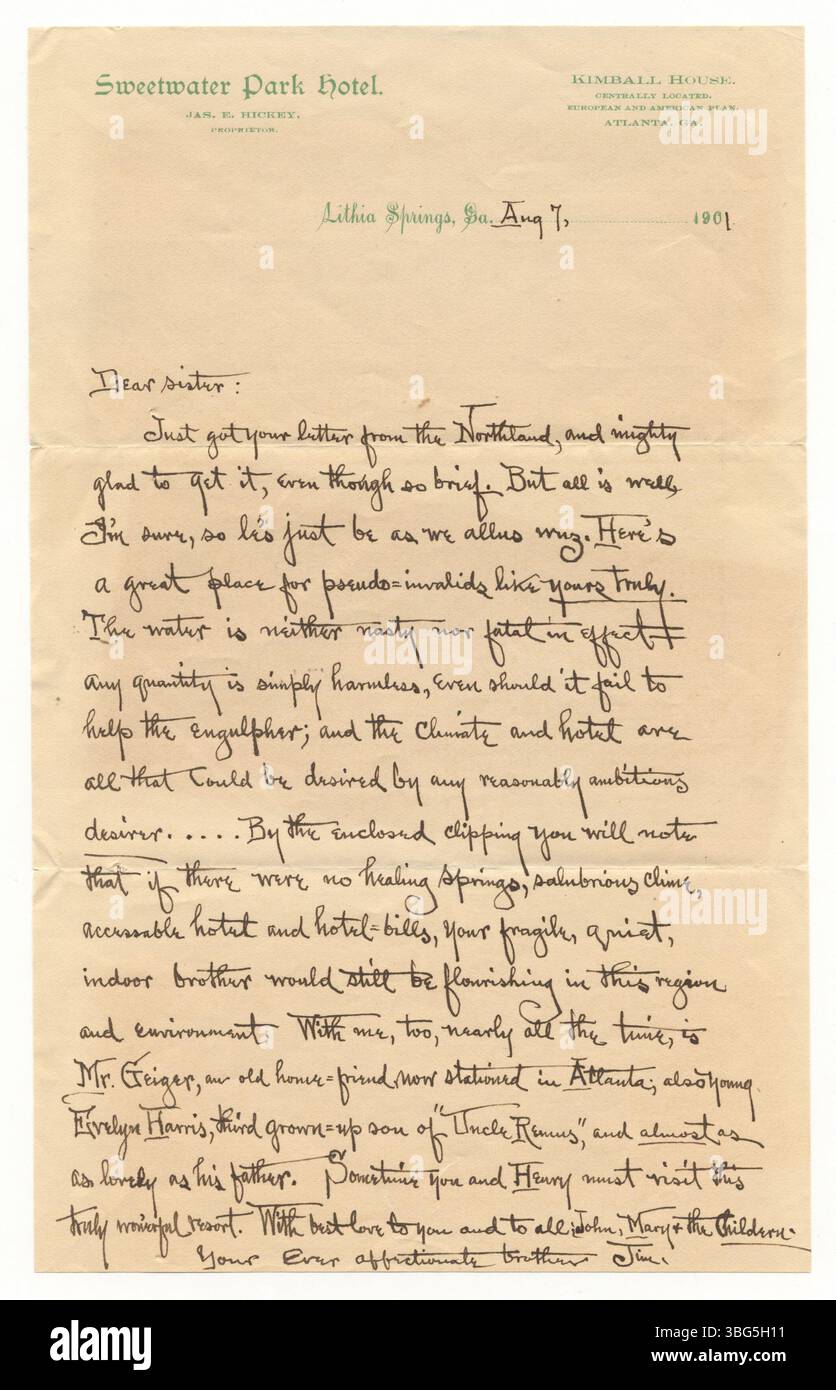 Sweetwater Park Hotel.
JAS. E. HICKEY,
PROPRIETOR.
KIMBALL HOUSE.
CENTRALLY LOCATED.
EUROPEAN AND AMERICAN PLAN.
ATLANTA, GA.
Lithia Springs, Ga. Aug 7, 1901
Dear sister:
Just got your letter from the Northland, and mighty
glad to get it, even though so brief. But all is well,
I'm sure, so le's just be as we allus wuz. Here's
a great place for pseudo=invalids like yours truly.
The water is neither nasty nor fatal in effect—
any quantity is simply harmless, even should it fail to
help the engulpher; and the climate and hotel are
all that could be desired by any reasonably ambitious
desirer. . . . . By the enclosed clipping you will note
that if there were no healing springs, salubrious clime,
accessable hotel and hotel=bills, your fragile, quiet,
indoor brother would still be flourishing in this region
and environment. With me, too, nearly all the time, is
Mr. Geiger, an old home=friend, now stationed in Atlanta; also young
Evelyn Harris, third grown=up son of "Uncle Remus," and almost as
as lovely as his father. Sometime you and Henry must visit this
truly wo'erful resort. With best love to you and to all: John, Mary & the Childern.
Your ever affectionate brother Jim.
alamy
alamy
alamy
alamy
alamy
alamy
Image ID: 3BG5H11
www.alamy.com